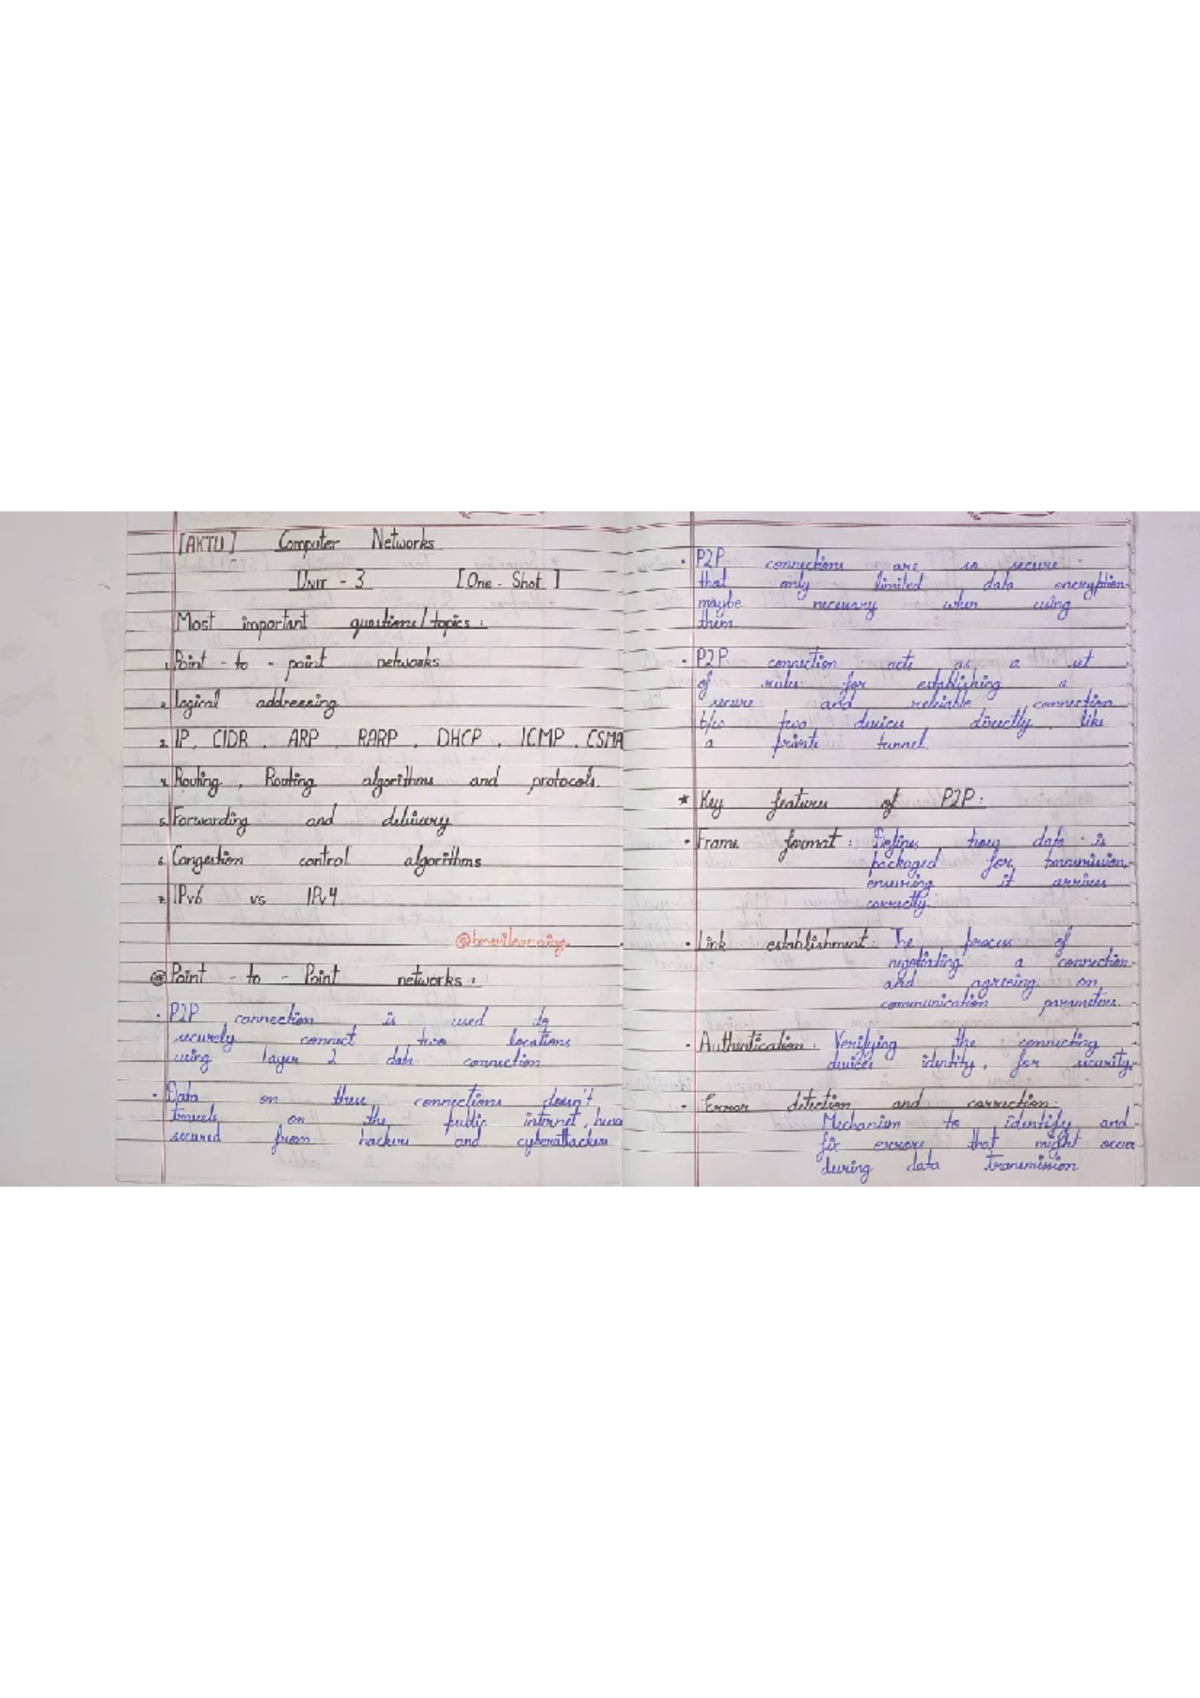 [AKTU] Computer Networks
UNIT - 3 [One - Shot]
Most important questions/topics:
1. Point - to - point networks
2. logical addressing
3. IP, CIDR, ARP, RARP, DHCP, ICMP, CSMA
4. Routing, Routing algorithms and protocols.
5. Forwarding and delivery
6. Congestion control algorithms
7. IPv6 vs IPv4
Point - to - Point networks:
• P2P connection is used to
securely connect two locations
using layer 2 data connection
• Data on these connections doesn't
travels on the public internet,
secured from hackers and cyberattackers
• P2P connections are so secure
that only limited data encryption
maybe necessary when using
them
• P2P connection acts as a set
of rules for establishing a
secure and reliable connection
b/w two devices directly like
a private tunnel
* Key features of P2P:
• Frame format: Defines how data is
packaged for transmission,
ensuring it arrives
correctly.
• Link establishment: The process of
negotiating a connection
and agreeing on
communication parameters.
• Authentication: Verifying the connecting
devices identity, for security.
• Error detection and correction:
Mechanism to identify and
fix errors that might occur
during data transmission